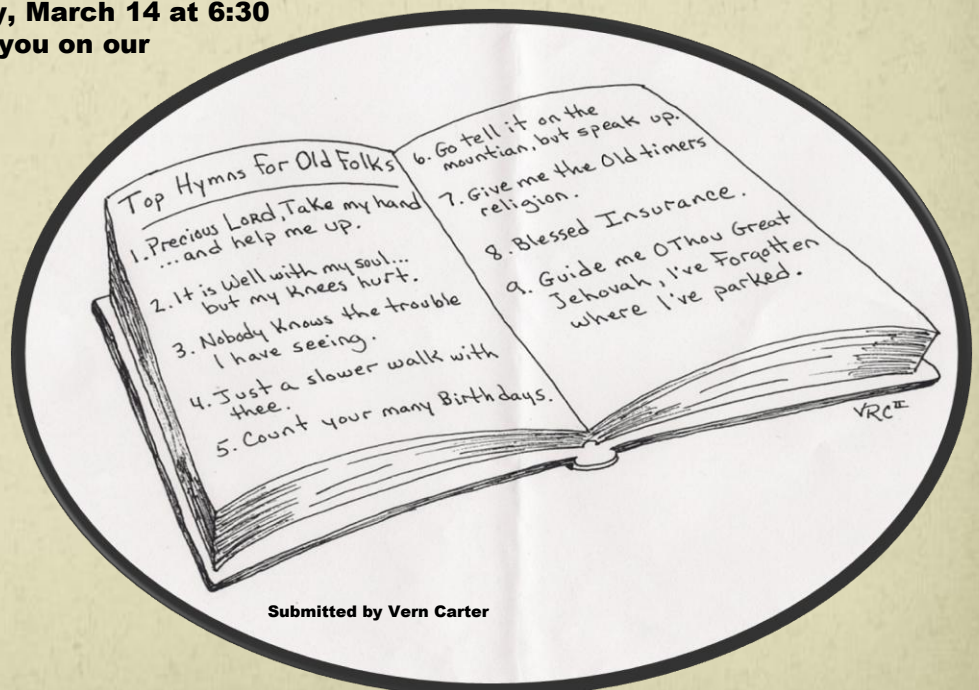 y, March 14 at 6:30
you on our
Top Hymns for Old Folks
1. Precious Lord, Take my hand
...and help me up.
2. It is Well with my soul...
but my Knees hurt.
3. Nobody Knows the trouble
I have seeing.
4. Just a slower walk with
thee.
5. Count your many Birthdays.
6. Go tell it on the
mountian, but speak up.
7. Give me the Old timers
religion.
8. Blessed Insurance.
9. Guide me O Thou Great
Jehovah, I've Forgotten
where I've parked.
VRC II
Submitted by Vern Carter